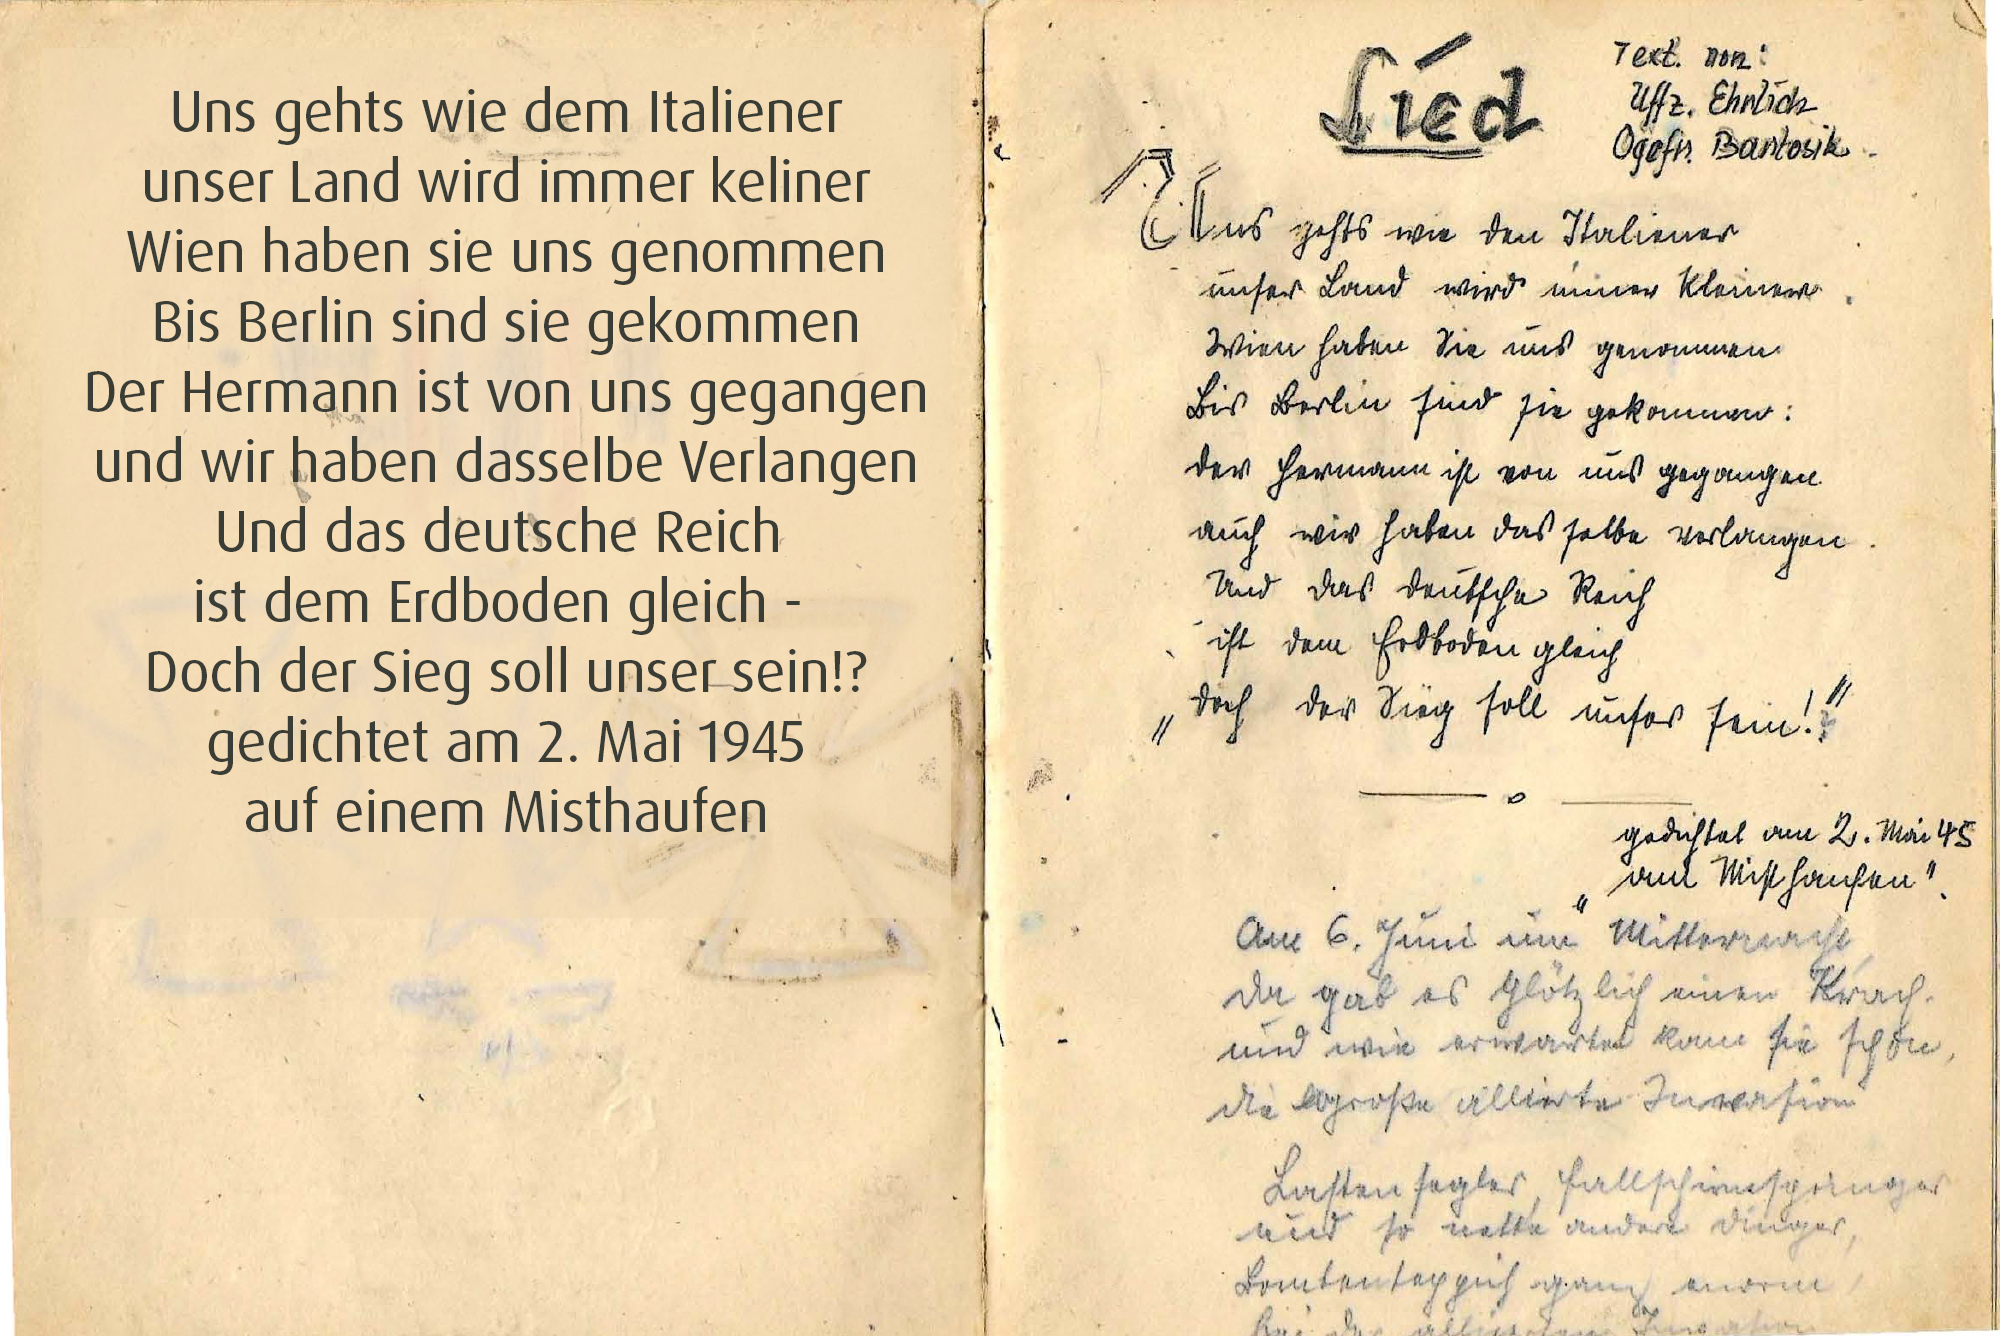 Uns gehts wie dem Italiener
unser Land wird immer keliner
Wien haben sie uns genommen
Bis Berlin sind sie gekommen
Der Hermann ist von uns gegangen
und wir haben dasselbe Verlangen
Und das deutsche Reich
ist dem Erdboden gleich -
Doch der Sieg soll unser sein!?
gedichtet am 2. Mai 1945
auf einem Misthaufen
Lied
Text. von:
Uffz. Ehrlich
Ogefr. Bartosik.
Uns gehts wie den Italiener
unser Land wird immer kleiner.
Wien haben Sie uns genommen
Bis Berlin sind sie gekommen:
der Hermann ist von uns gegangen
auch wir haben das selbe verlangen.
Und das deutsche Reich
ist dem Erdboden gleich
„doch der Sieg soll unser sein!?"
gedichtet am 2. Mai 45
„am Misthaufen".
Am 6. Juni um Mitternacht,
da gab es plötzlich einen Krach.
und wie erwartet kam sie schon,
die große allierte Invasion
Lastensegler, Fallschirmspringer
und so nette andere dinger,
Bombenteppich ganz enorm,
bei der allierten Invasion